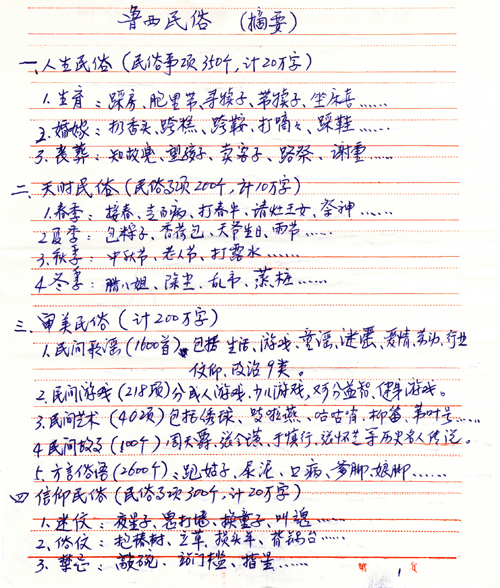 鲁西民俗 (摘要)
一、人生民俗 (民俗事项350个, 计20万字)
1. 生育: 踩房、胞里带、寻孩子、带孩子、坐床喜……
2. 婚嫁: 扔舌头、跨糕、跨鞍、打嘀々、踩鞋……
3. 丧葬: 知故
二、天时民俗 (民俗事项200个, 计10万字)
1. 春季: 接春、走百病、打春牛、请灶王女、祭神……
2. 夏季: 包粽子、香荷包、天爷生日、雨节……
3. 秋季: 中秋节、老人节、打露水……
4. 冬季: 腊八姐、除尘、乱市、蒸桩……
三、审美民俗 (计200万字)
1. 民间歌谣 (1600首) 包括 生活、游戏、童谣、迷恶、爱情、劳动、行业
信仰、政治9类。
2. 民间游戏 (218项) 分成人游戏、少儿游戏、又可分益智、健身游戏。
3. 民间艺术 (402项) 包括绣球、吱啦燕、咕咕肖、柳笛、苇叶号……
4. 民间故事 (100个) 周天爵、于慎行、等历史名人传说。
5. 方言俗语 (2600个): 跑姑子、尿泥、口病、爹脚、娘脚……
四 信仰民俗 (民俗事项300个, 计20万字)
1. 迷信: 夜星子、鬼打墙、换童子、叫魂……
2. 俗信: 抱椿树、立草、
3. 禁忌: 敲碗、站门槛、指星……
1